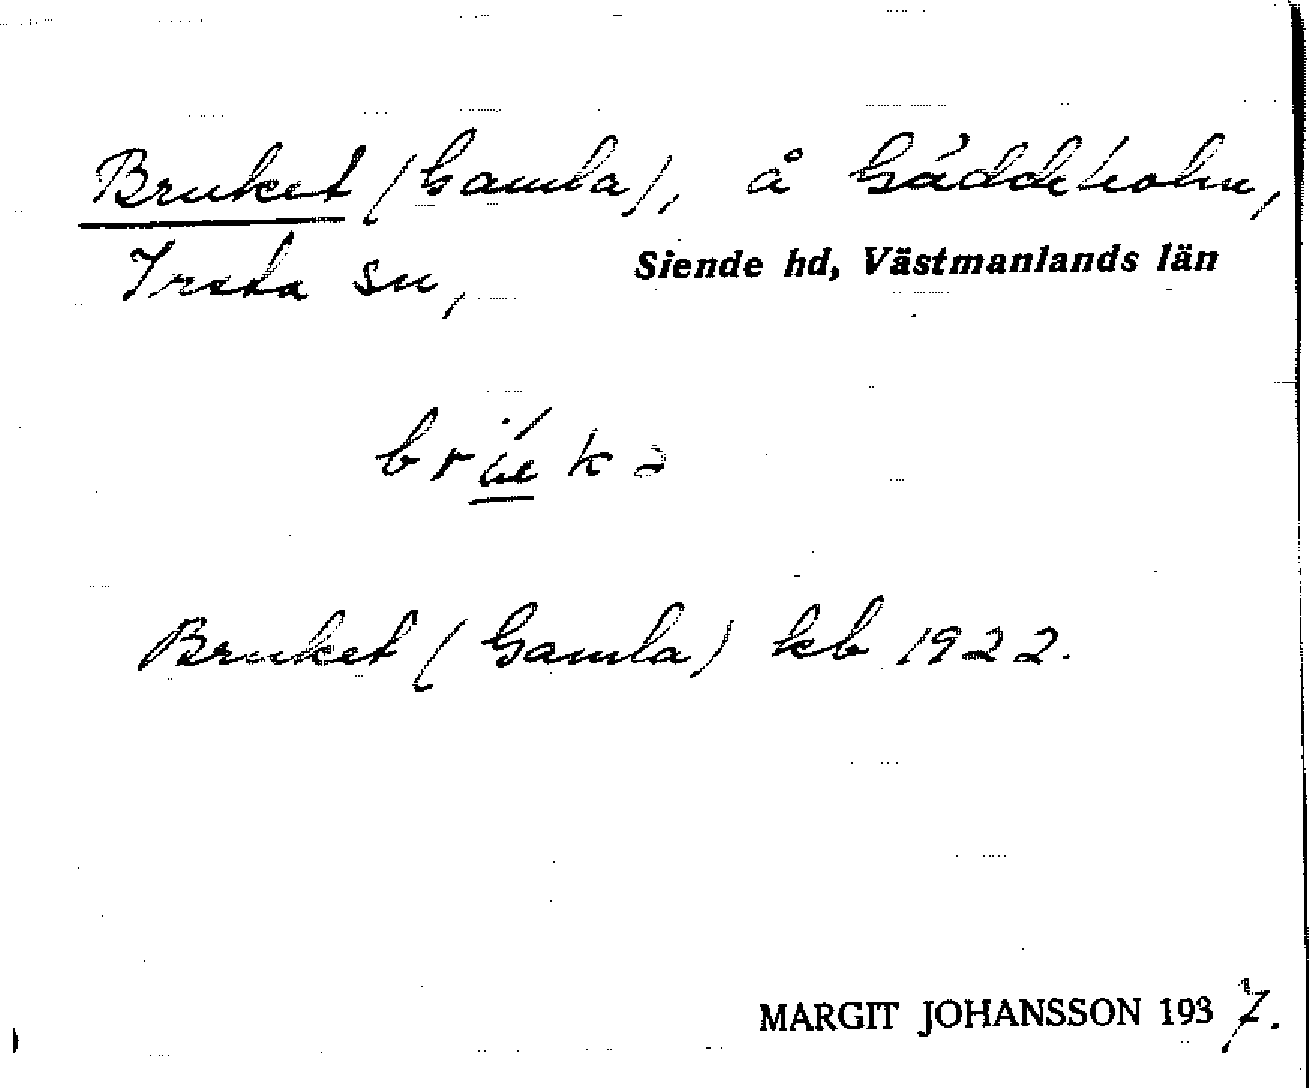 Bruket (Gamla), å Gäddeholm,
Irsta sn, Siende hd, Västmanlands län
Bruket (Gamla) kb 1922.
MARGIT JOHANSSON 1937.